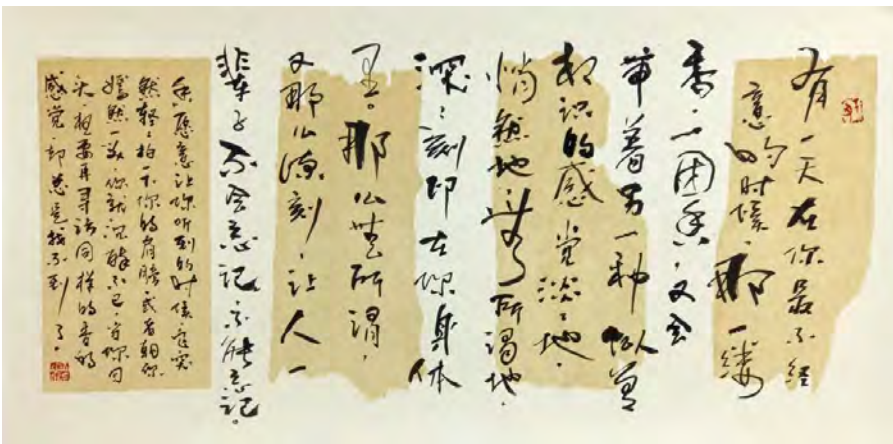 有一天在你最不经
意的时候，那一缕
香，一团香，又会
带着另一种似曾
相识的感觉淡淡地、
悄然地、無所谓地、
深深刻印在你身体
里。那么無所谓，
又那么深刻，让人一
辈子不会忘记、不能忘记。
香愿意让你听到的时候，会突
然轻轻拍一下你的肩膀，或者朝你
嫣然一笑，你就沉醉不已，当你回
头，想要再寻访同样的香的
感觉，却总是找不到了。